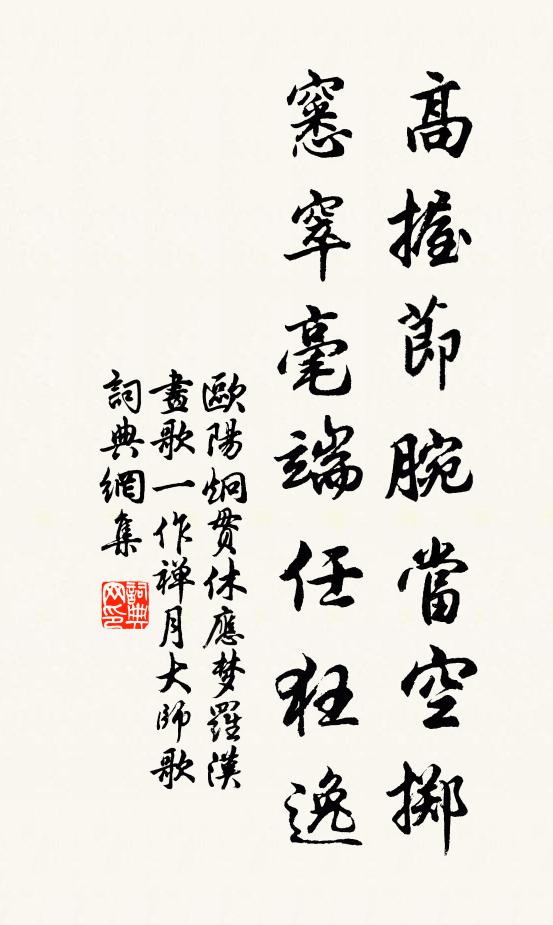 高握節腕當空擲
窸窣毫端任狂逸
歐陽炯貫休應梦羅漢
畫歌一作禅月大師歌
詞典網集
詞典
网印